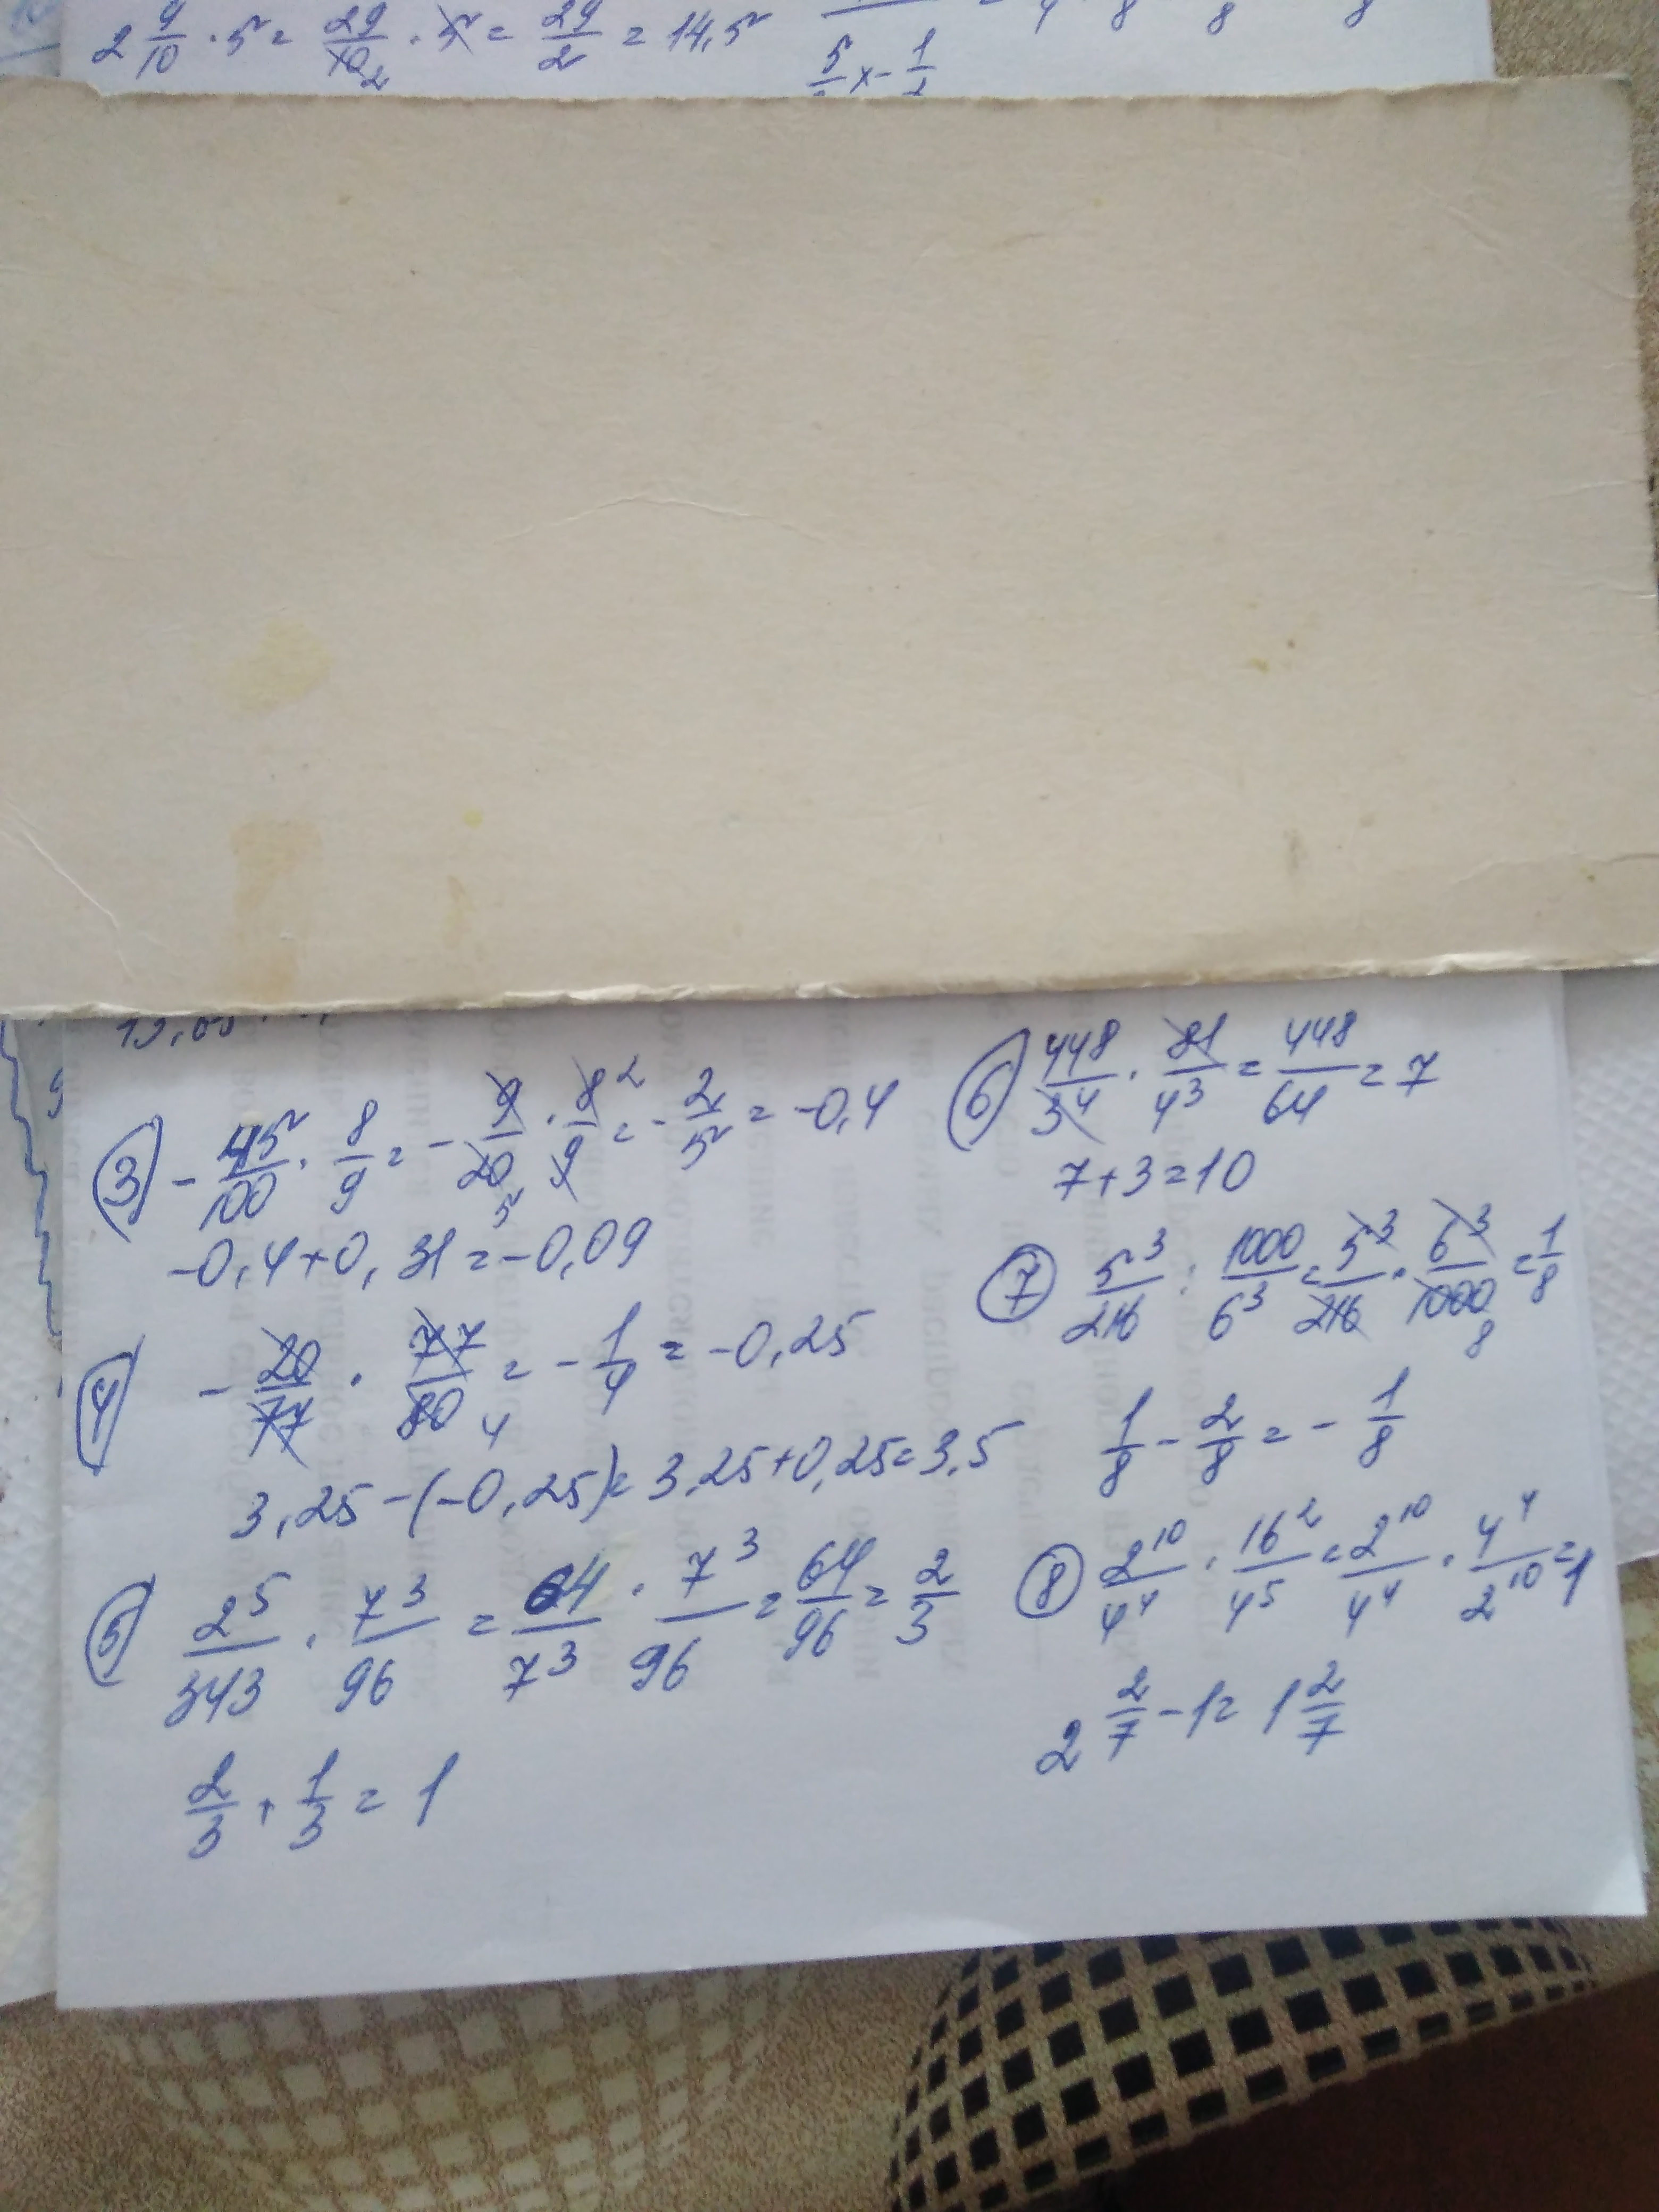 2 9/10 · 5 = 29/10 2 · 5 = 29/2 = 14,5
5/ x - 1/2
③ - 45/100 · 8/9 = - 9/20 5 · 8 2/9 = - 2/5 = -0,4
-0,4+0,31=-0,09
④ - 20/77 · 77/80 4 = - 1/4 = -0,25
3,25-(-0,25)= 3,25+0,25=3,5
⑤ 2^5/343 · 7^3/96 = 64/7^3 · 7^3/96 = 64/96 = 2/3
2/3 + 1/3 = 1
⑥ 448/3^4 · 81/4^3 = 448/64 = 7
7+3=10
⑦ 5^3/216 : 1000/6^3 = 5^3/216 · 6^3/1000 8 = 1/8
1/8 - 2/8 = - 1/8
⑧ 2^10/4^4 · 16^2/4^5 = 2^10/4^4 · 4^4/2^10 = 1
2 2/7 - 1 = 1 2/7